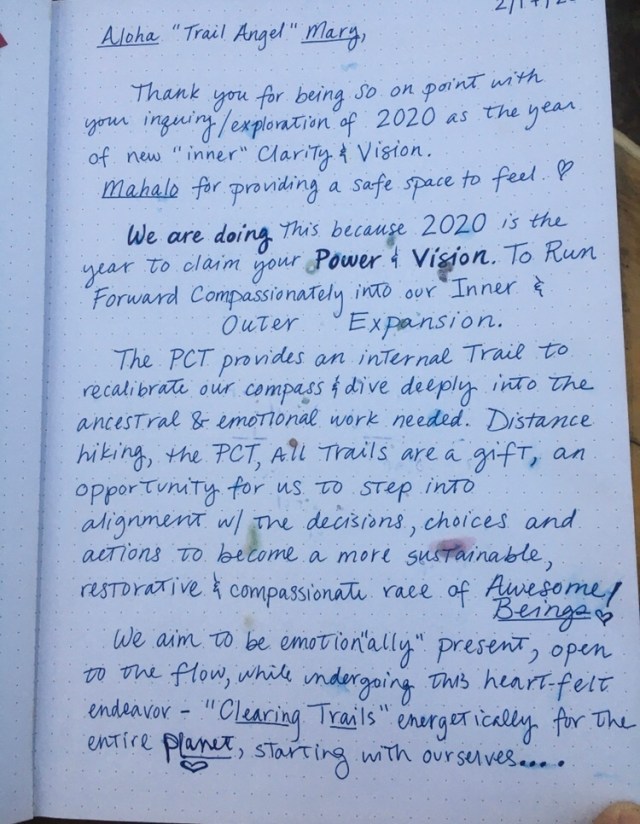 Aloha "Trail Angel" Mary,
Thank you for being so on point with
your inquiry/exploration of 2020 as the year
of new "inner" Clarity & Vision.
Mahalo for providing a safe space to feel. ♡
We are doing This because 2020 is the
year to claim your Power & Vision. To Run
Forward Compassionately into our Inner &
Outer Expansion.
The PCT provides an internal Trail to
recalibrate our compass & dive deeply into the
ancestral & emotional work needed. Distance
hiking, the PCT, All Trails are a gift, an
opportunity for us to step into
alignment w/ the decisions, choices and
actions to become a more sustainable,
restorative & compassionate race of Awesome!
Beings ♡
We aim to be emotion"ally" present, open
to the flow, while undergoing this heart-felt
endeavor - "Clearing Trails" energetically for the
entire planet, starting with ourselves.....
♡